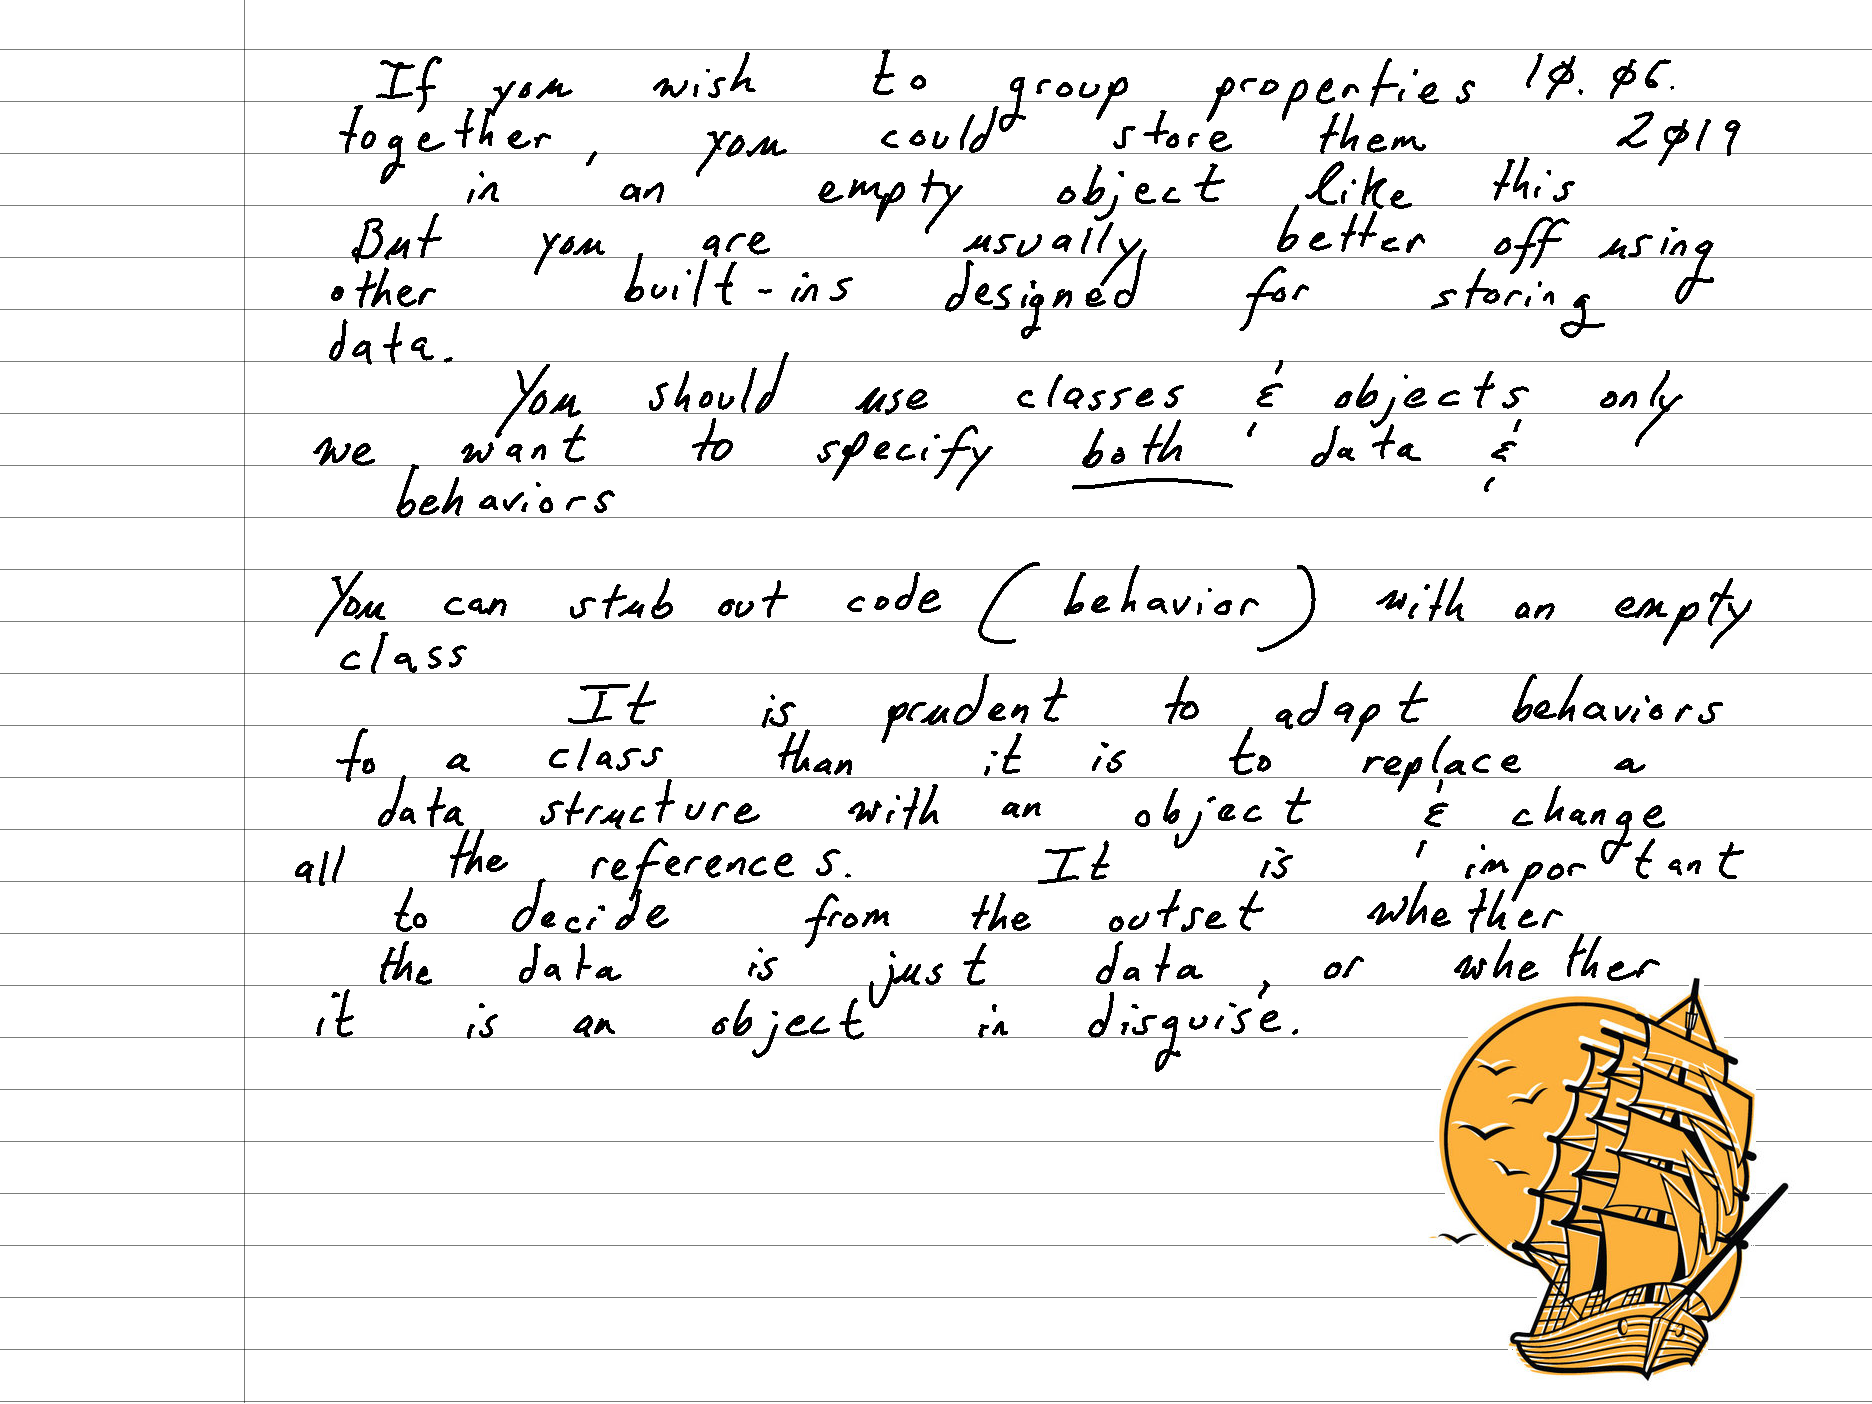 If you wish to group properties 10.06.
together, you could store them 2019
in an empty object like this
But you are usually better off using
other built-ins designed for storing
data.
You should use classes & objects only
we want to specify both data &
behaviors
You can stub out code (behavior) with an empty
class
It is prudent to adapt behaviors
to a class than it is to replace a
data structure with an object & change
all the references. It is important
to decide from the outset whether
the data is just data, or whether
it is an object in disguise.